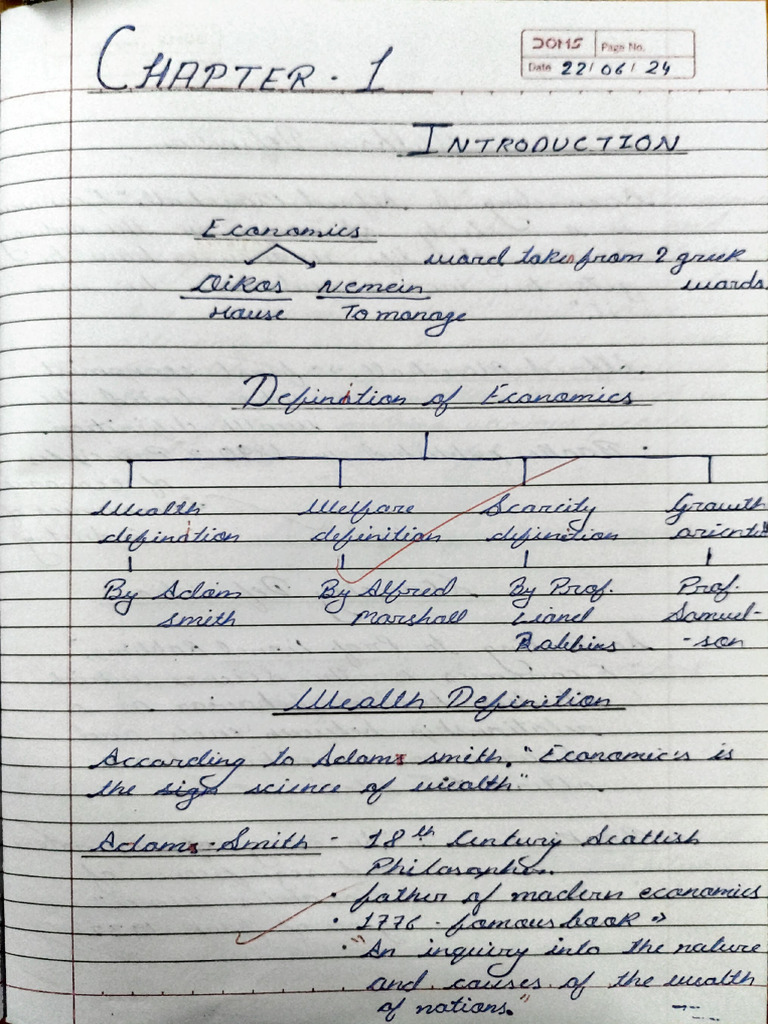 DOMS Page No.
Date 22/06/24
CHAPTER - 1
INTRODUCTION
Economics
word taken from 2 greek
words.
Oikos Nemein
House To manage
Definition of Economics
Wealth definition
Welfare definition
Scarcity definition
Growth
By Adam smith
By Alfred Marshall
By Prof. Lionel Robbins
Prof. Samuel-
-son
Wealth Definition
According to Adams smith. "Economic's is
the sign science of wealth"
Adams Smith - 18th Century Scottish
Philosopher.
• father of modern economics
• 1776 - famous book =>
• "An inquiry into the nature
and causes of the wealth
of nations."